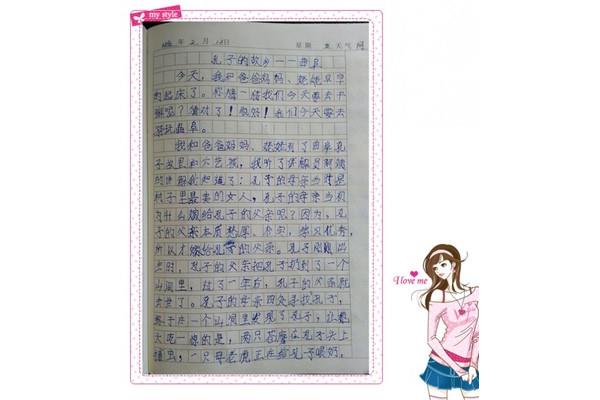 my style
年 2 月 12日 星期 天气 阴
孔子的故乡——曲阜
今天，我和爸爸妈妈、姥姥早早
的起床了。你猜一猜我们今天要去干
嘛呢？猜对了！很好！我们今天要去
游玩曲阜。
我和爸爸妈妈、姥姥看了曲阜孔
子故里和六艺城，我听了讲解员姐姐
的讲解我知道了：孔子的母亲当时是
村子里最美的女人，孔子的母亲当初
为什么嫁给孔子的父亲呢？因为，孔
子的父亲本质憨厚、老实，
所以才嫁给孔子的父亲。孔子刚刚出
生时，孔子的父亲把孔子扔到了一个
山洞里，过了一年后，孔子的父亲就
去世了。孔子的母亲四处寻找孔子，
终于在一个山洞里发现了孔子，让她
大吃一惊的是，两只苍鹰在孔子头上
捕虫，一只母老虎正在给孔子喂奶，
I love me